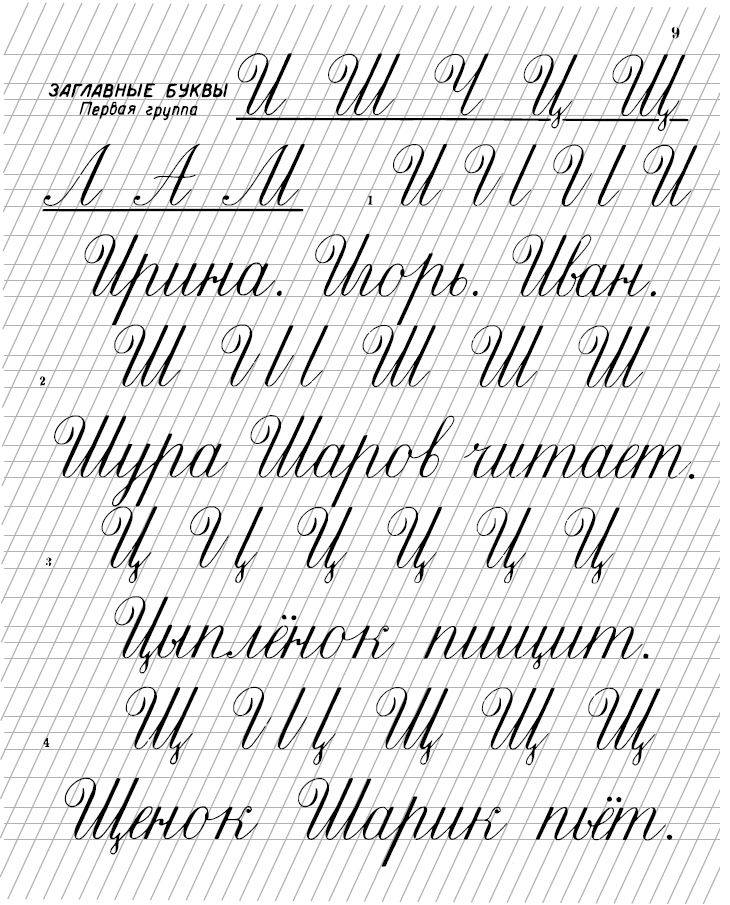 9
ЗАГЛАВНЫЕ БУКВЫ И Ш Ч Ц Щ
Первая группа
Л А М 1 И И И И
Ирина. Игорь. Иван.
2 Ш Ш Ш Ш Ш
Шура Шаров читает.
3 Ц Ц Ц Ц Ц Ц
Цыплёнок пищит.
4 Щ Щ Щ Щ Щ
Щенок Шарик пьёт.